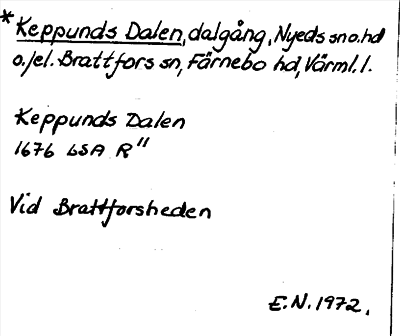 *Keppunds Dalen, dalgång, Nyeds sn o. hd
o./el. Brattfors sn, Färnebo hd, Värml. l.
Keppunds Dalen
1676 LSA R"
Vid Brattforsheden
E.N. 1972.